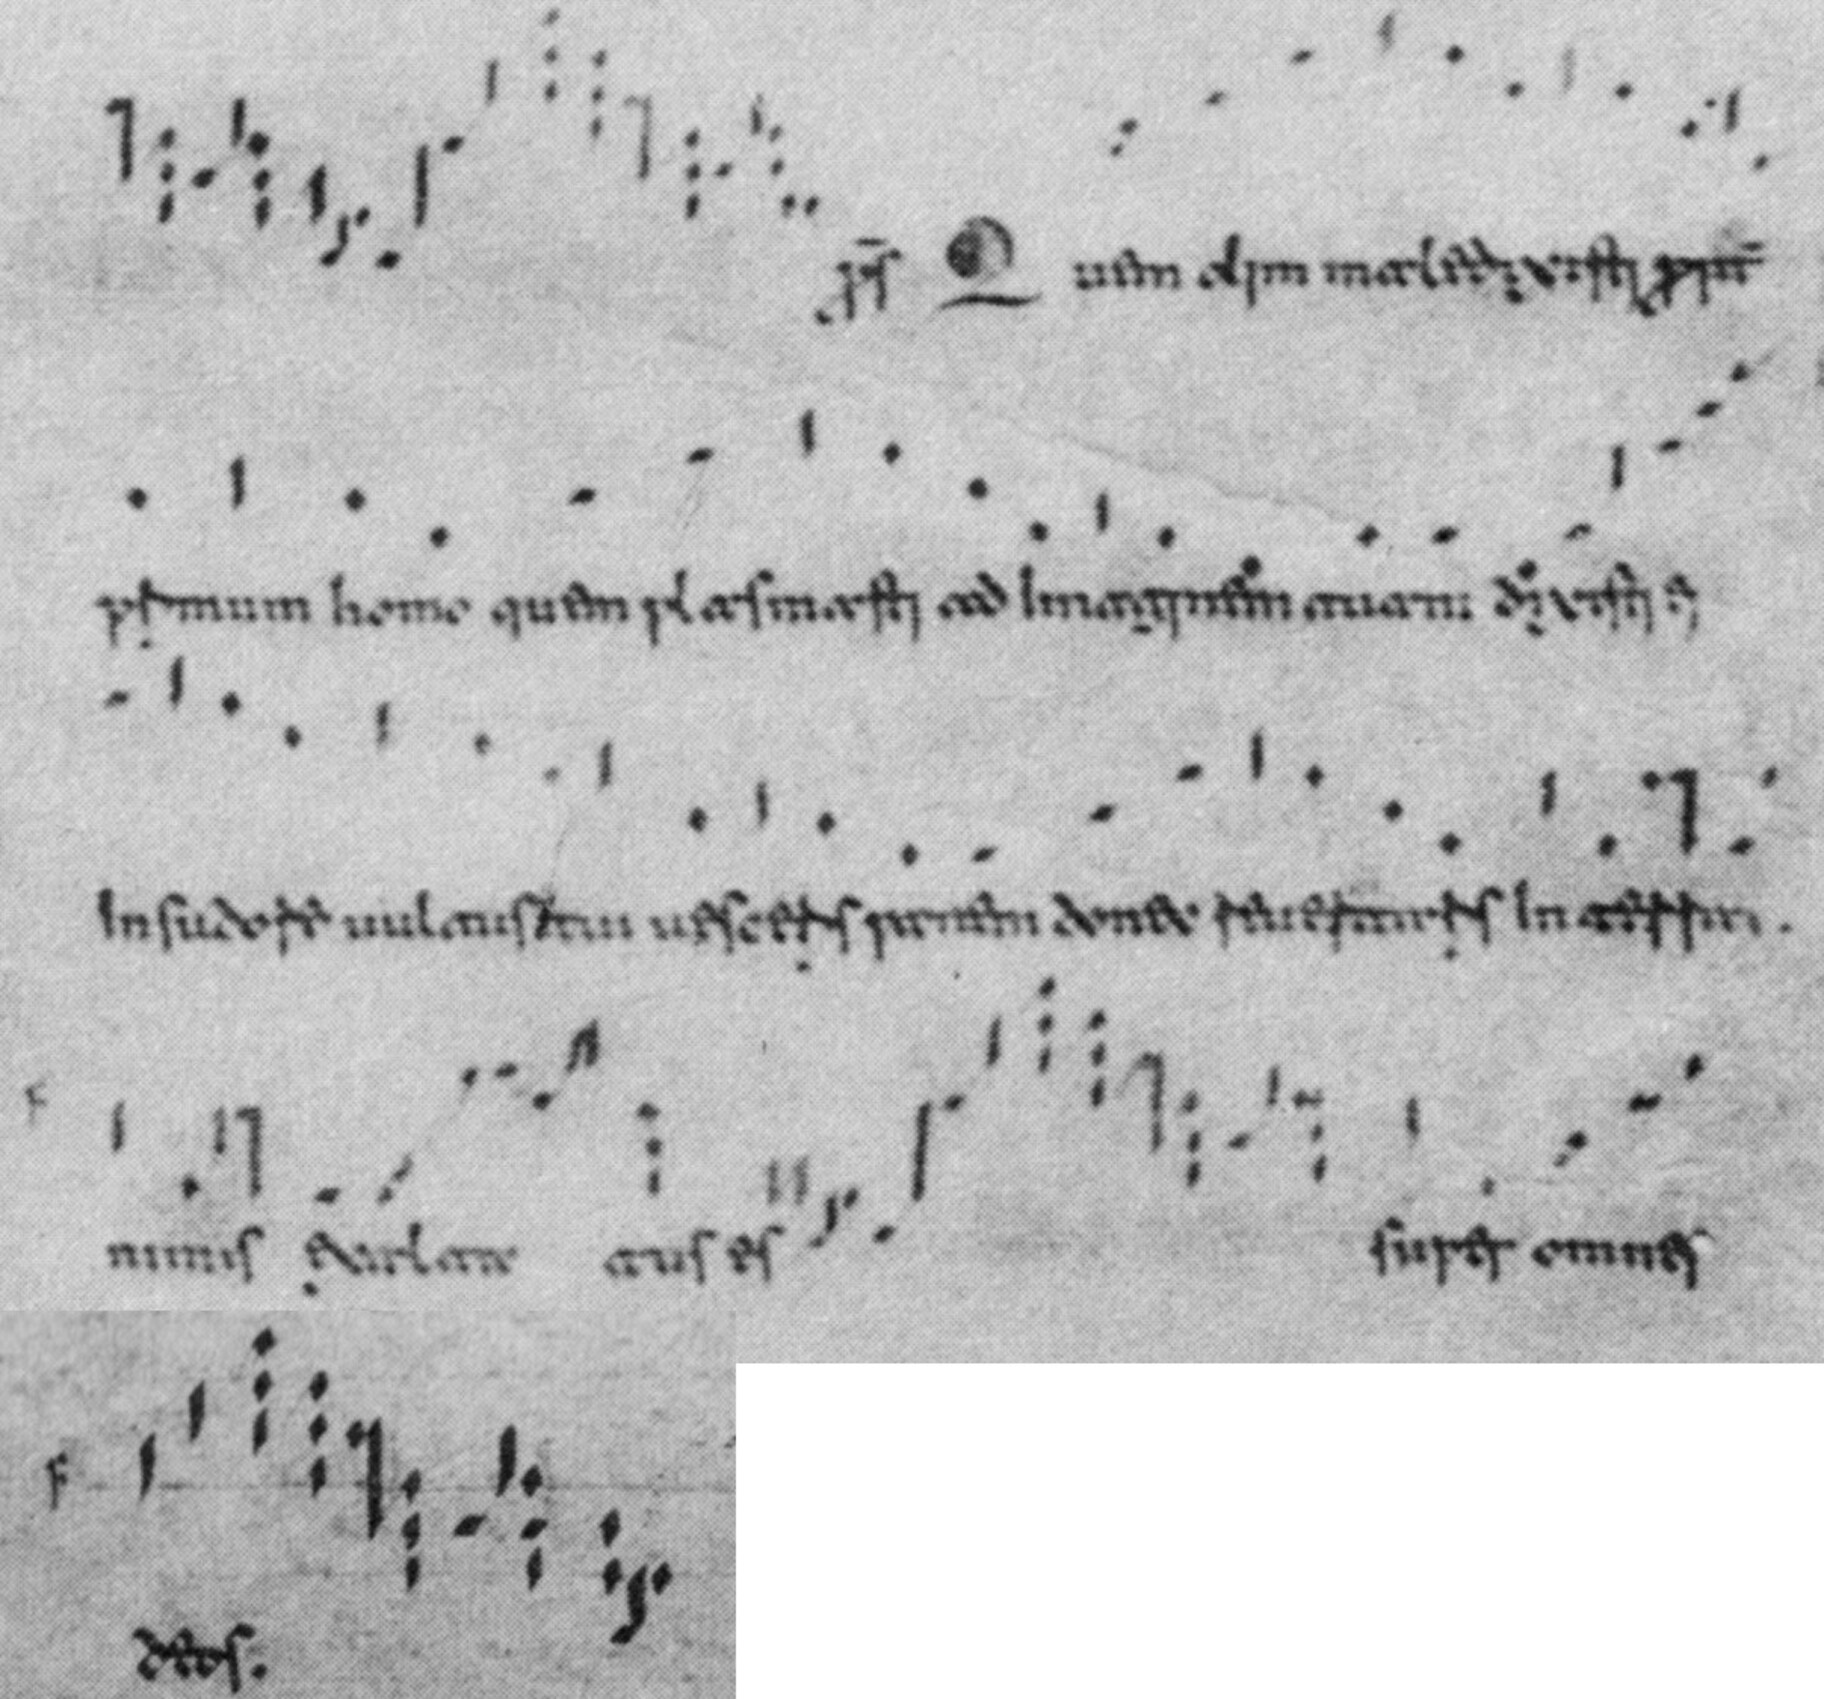 ps̄ Q uem olim maledixisti
primum homo quem plasmasti ad Imaginem tuam dixisti ei
In sudore uultus tui uesceris panem donec reuertaris In terram.
F nimis exalta tus es super omnes
F deos.